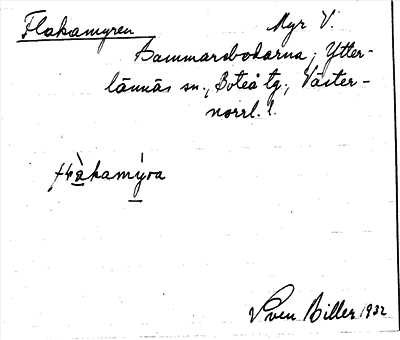 Flakamyren Myr V.
Hammarsbodarna, Ytter-
lännäs sn., Boteå tg., Väster-
norrl. l.
flàkamýra
Sven Biller 1932